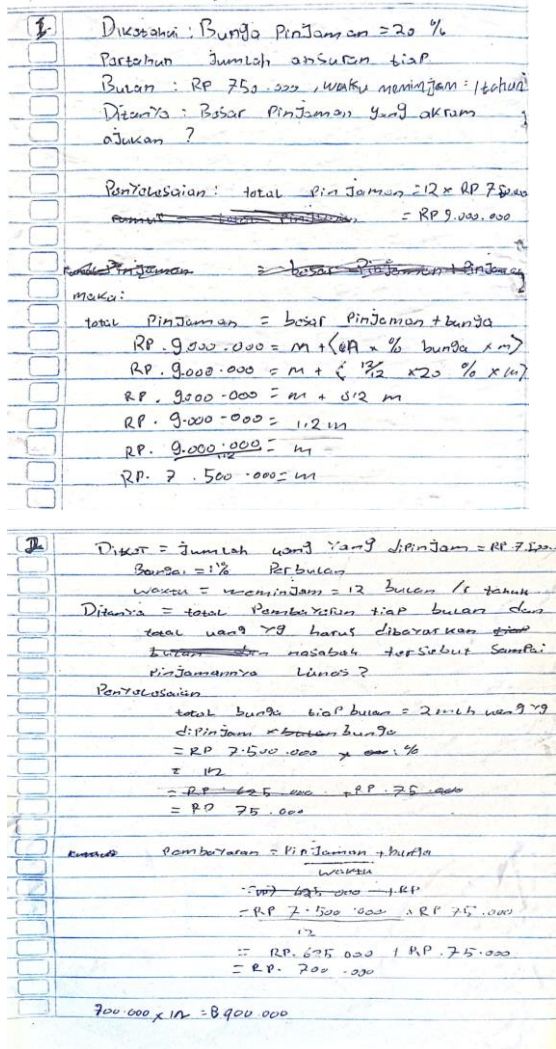 I. Diketahui : Bunga Pinjaman = 20 %
Pertahun Jumlah ansuran tiap
Bulan : RP 750.000, waktu meminjam = 1 tahun
Ditanya : Besar Pinjaman yang akram
ajukan ?
Penyelesaian : total Pinjaman = 12 x RP 750.000
= RP 9.000.000
Pinjaman = besar Pinjaman + Pinjaman
maka :
total Pinjaman = besar Pinjaman + bunga
RP. 9.000.000 = m + ( x % bunga x m)
RP. 9.000.000 = m + ( 12/12 x 20 % x m)
RP. 9.000.000 = m + 0.2 m
RP. 9.000.000 = 1.2 m
RP. 9.000.000 = m
1.2
RP. 7.500.000 = m
II Diket = Jumlah uang yang dipinjam = RP 7.500.000
Bunga = 1% Perbulan
waktu = meminjam = 12 bulan / 1 tahun
Ditanya = total Pembayaran tiap bulan dan
total uang yg harus dibayarkan tiap
bulan dan nasabah tersebut sampai
Pinjamannya Lunas ?
Penyelesaian
total bunga tiap bulan = uang yg
dipinjam x bulan bunga
= RP 7.500.000 x %
= 12
= RP. 625.000 + RP. 75.000
= RP 75.000
Pembayaran = Pinjaman + bunga
waktu
625.000 + RP
= RP 7.500.000 + RP 75.000
12
= RP. 625.000 + RP. 75.000
= RP. 700.000
700.000 x 12 = 8.400.000